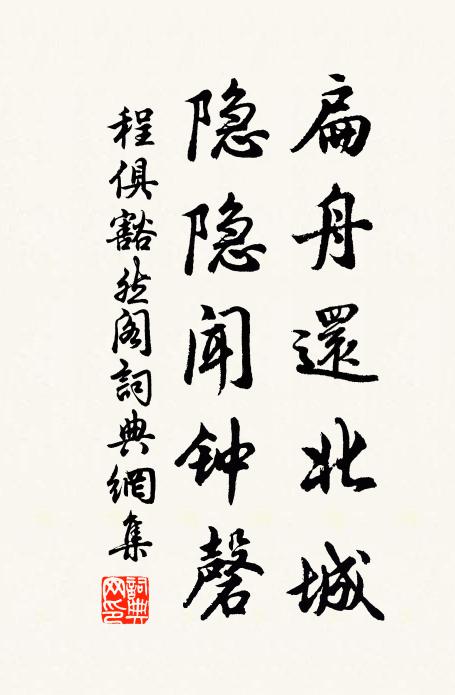 扁舟還北城
隐隐闻钟磬
程俱豁然阁詞典網集
詞典網印